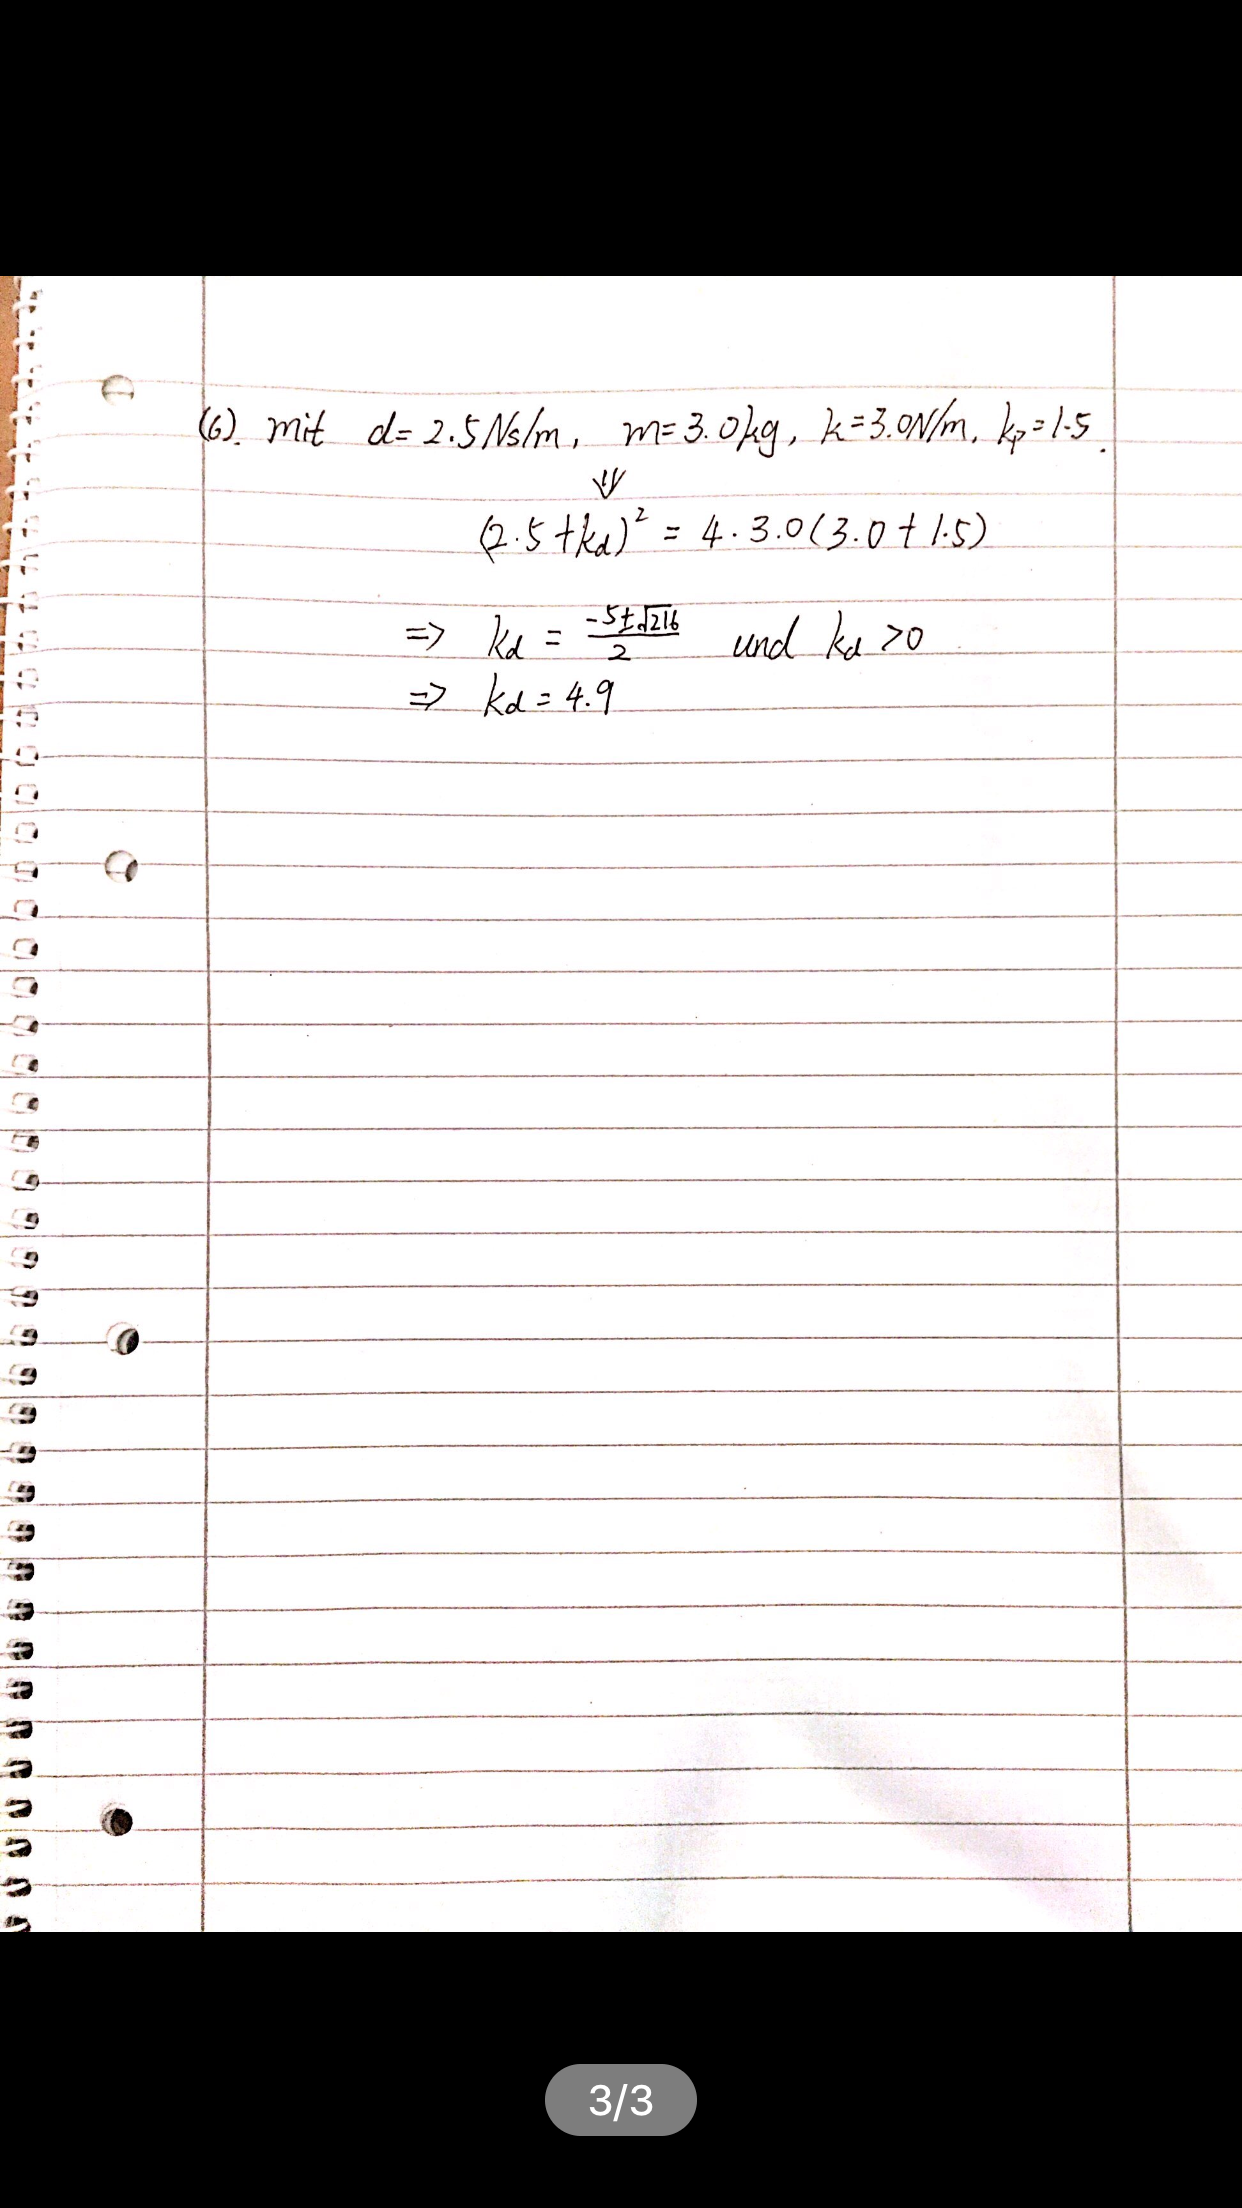 (6). mit d= 2.5 Ns/m, m= 3.0kg, k=3.0N/m, kp=1.5.
⇓
(2.5+kd)² = 4.3.0(3.0+1.5)
=> kd = (-5±√216)/2 und kd >0
=> kd = 4.9
3/3